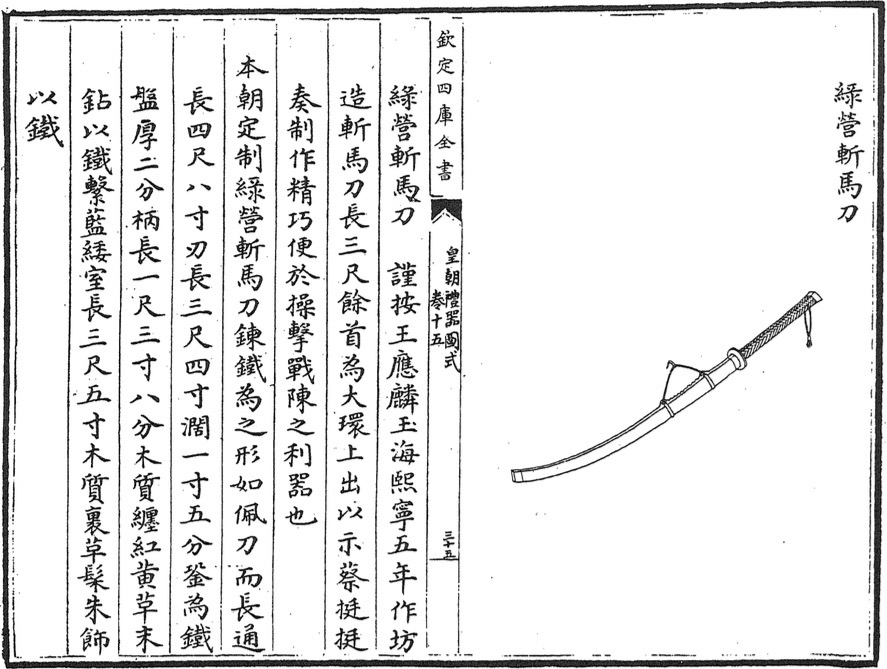 綠營斬馬刀
欽定四庫全書
皇朝禮器圖式
卷十五
三十五
綠營斬馬刀　謹按王應麟玉海熙寧五年作坊
造斬馬刀長三尺餘首為大環上出以示蔡挺挺
奏制作精巧便於操擊戰陳之利器也
本朝定制綠營斬馬刀鍊鐵為之形如佩刀而長通
長四尺八寸刃長三尺四寸濶一寸五分銎為鐵
盤厚二分柄長一尺三寸八分木質纏紅黃草末
鉆以鐵繫藍緌室長三尺五寸木質裹草髹朱飾
以鐵